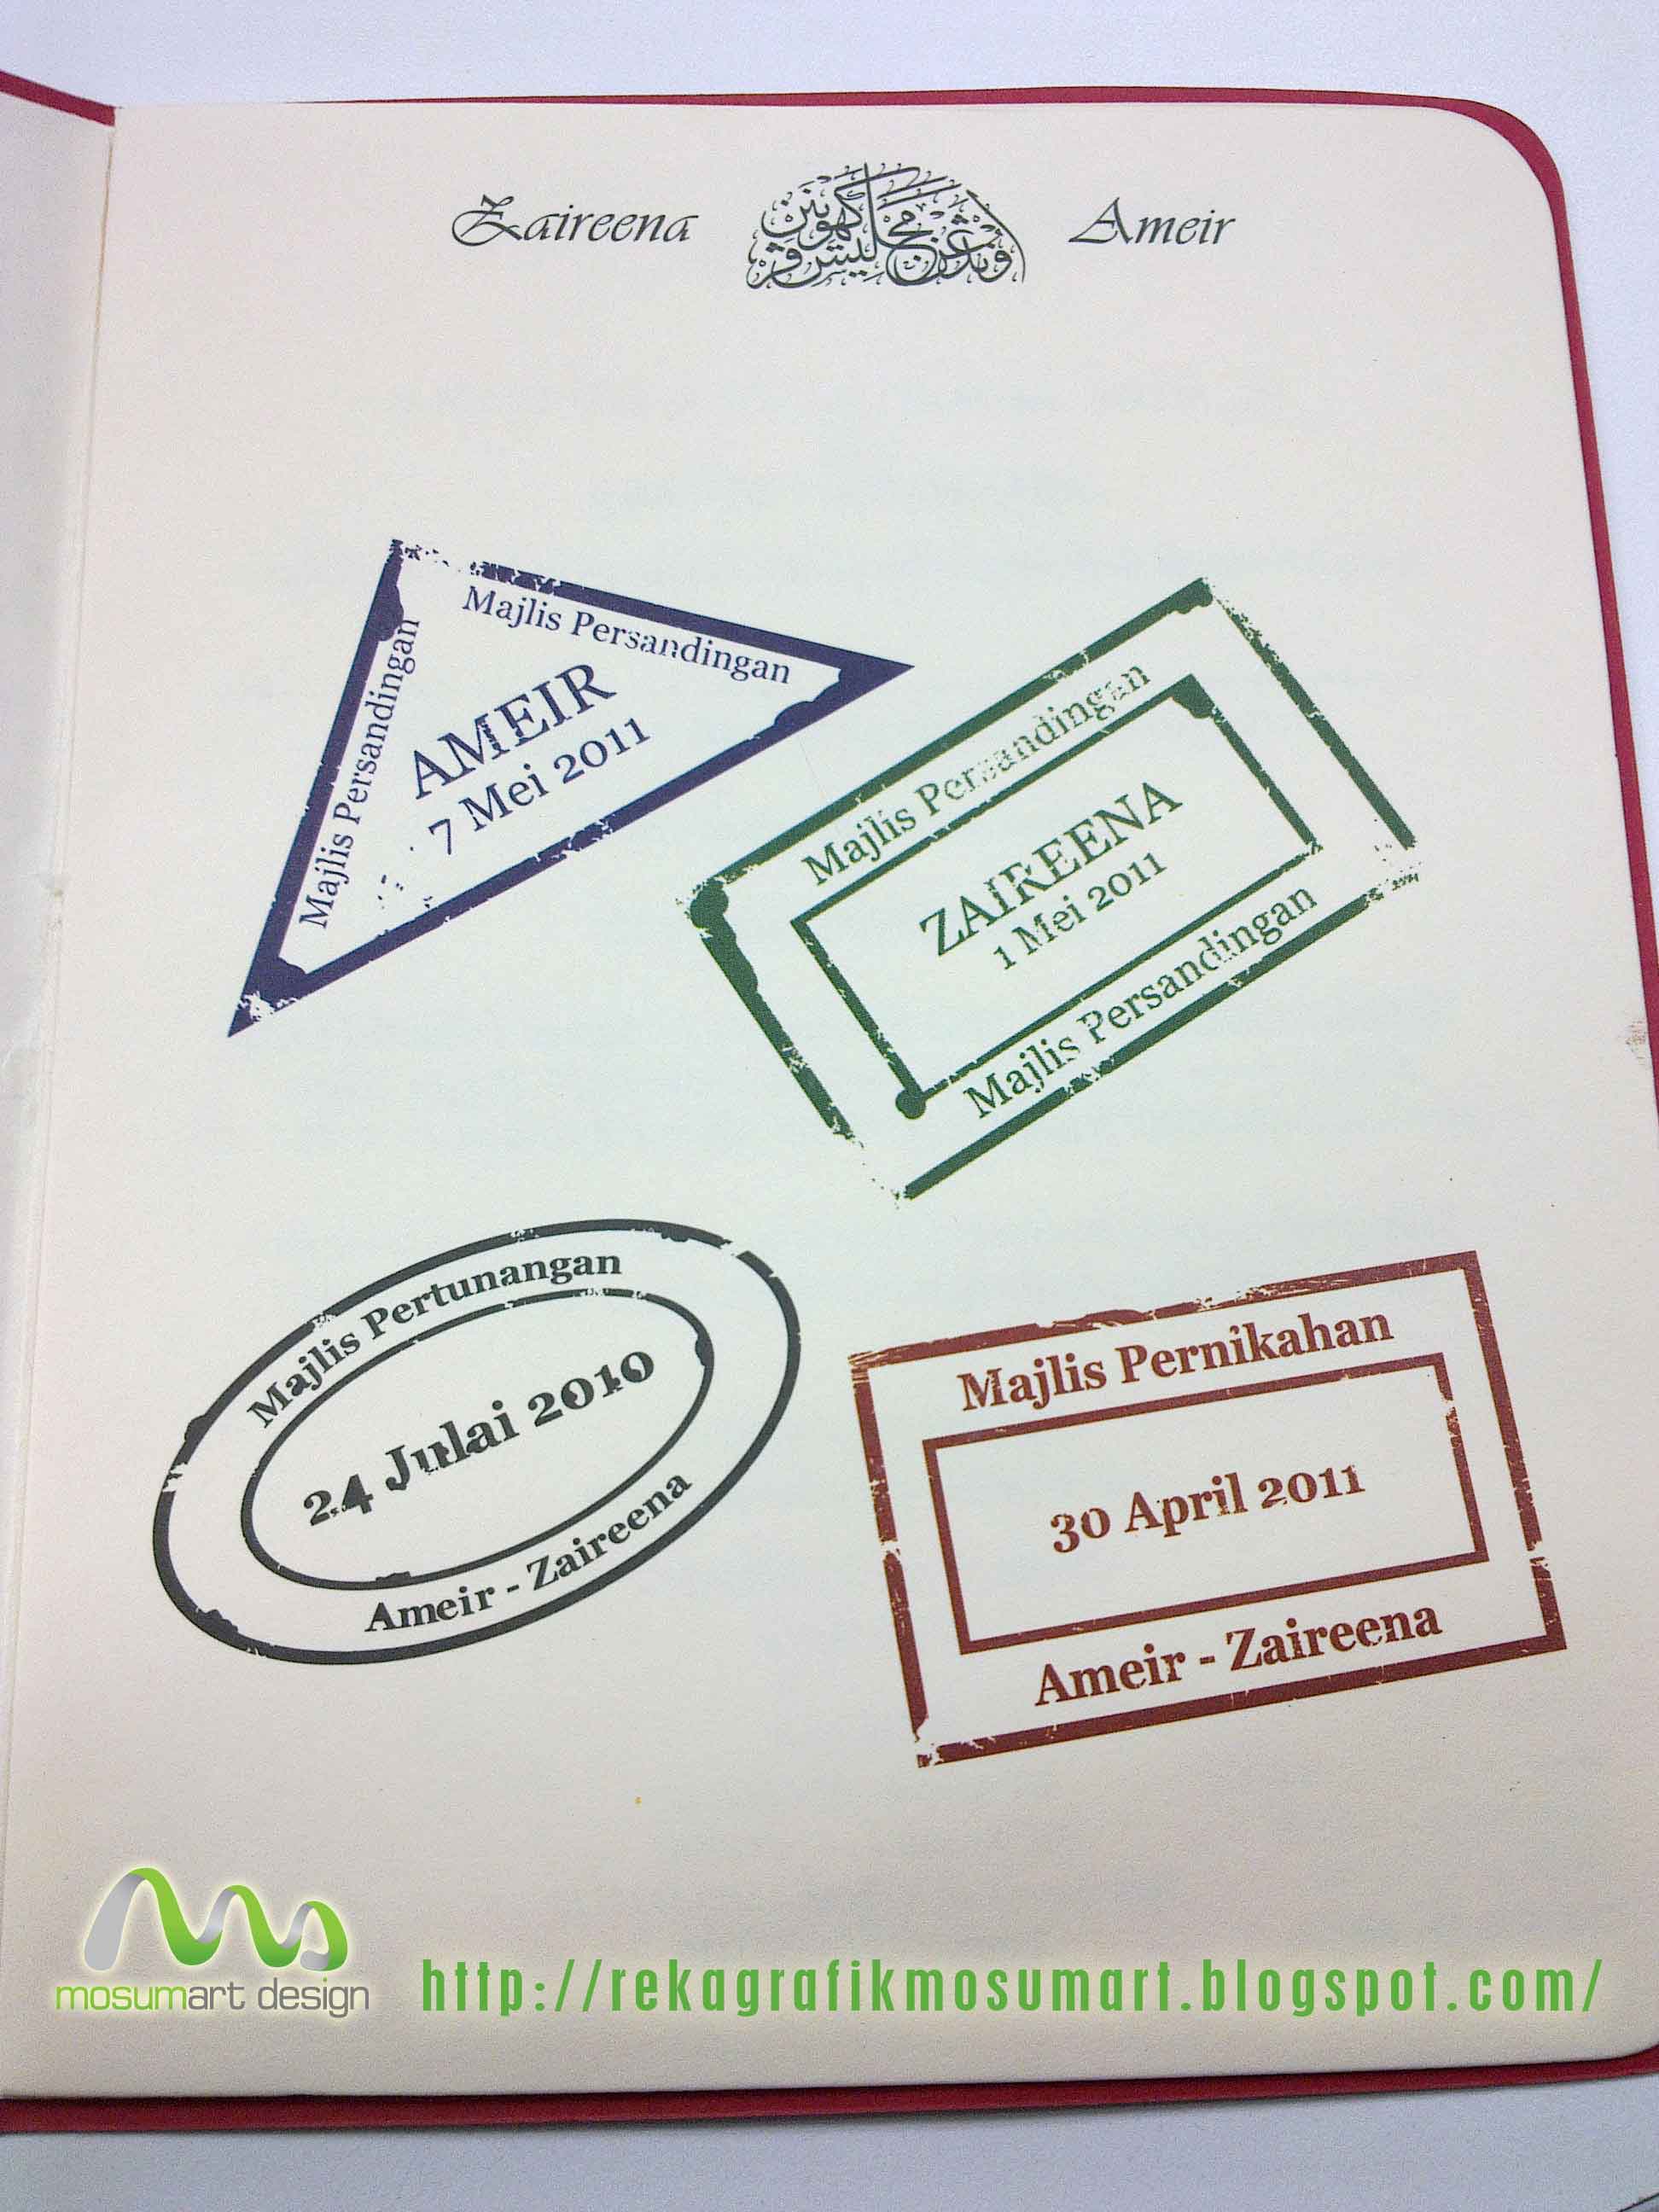 Zaireena
اوندڠن مجليس ڤركهوينن
Ameir
Majlis Persandingan
Majlis Persandingan
AMEIR
7 Mei 2011
Majlis Persandingan
ZAIREENA
1 Mei 2011
Majlis Persandingan
Majlis Pertunangan
24 Julai 2010
Ameir - Zaireena
Majlis Pernikahan
30 April 2011
Ameir - Zaireena
mosumart design
http://rekagrafikmosumart.blogspot.com/